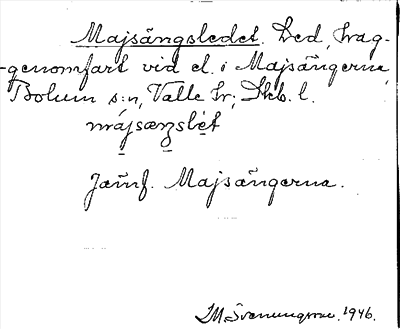 Majsängsledet. Led, vag-
-genomfart vid el. i Majsängerna,
Bolum s:n, Valle hr; Skb. l.
májsæŋslèt
Jämf. Majsängerna.
M. Svenungsson. 1946.